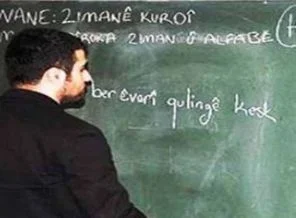 WANE: ZIMANÊ KURDÎ
ZIMAN Û ALFABE
berêvarî qulingê kesk